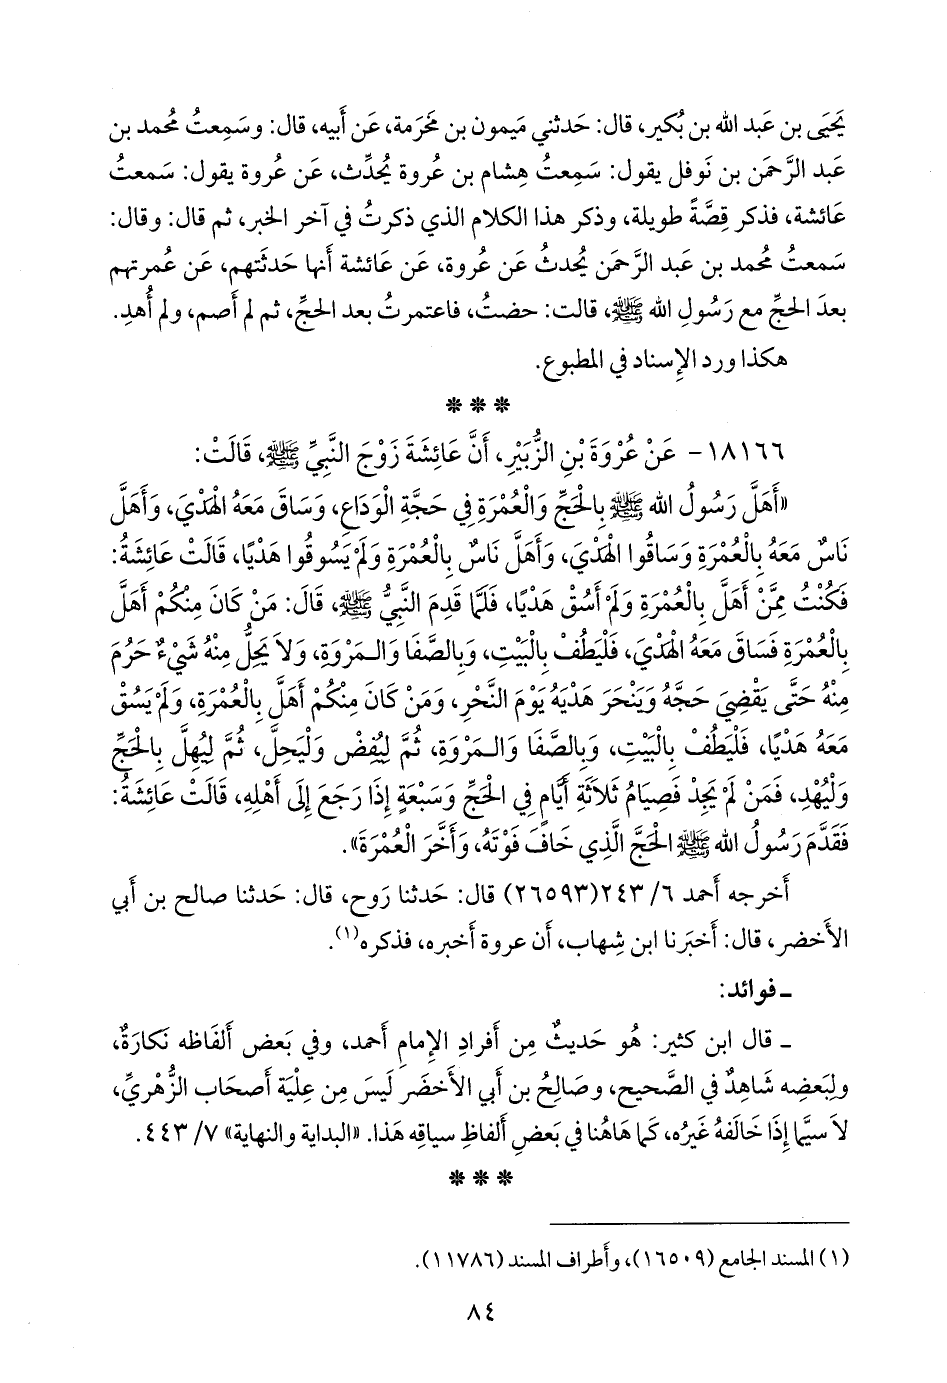 يَحيَى بن عَبد الله بن بُكير، قال: حَدثني مَيمون بن مَخرَمة، عَن أَبيه، قال: وسَمِعتُ مُحمد بن
عَبد الرَّحمَن بن نَوفل يقول: سَمِعتُ هِشام بن عُروة يُحدِّث، عَن عُروة يقول: سَمعتُ
عَائشة، فذكر قِصَّةً طويلة، وذكر هذا الكلام الذي ذكرتُ في آخر الخبر، ثم قال: وقال:
سَمعتُ مُحمد بن عَبد الرَّحمَن يُحدثُ عَن عُروة، عَن عَائشة أَنها حَدثَتهم، عَن عُمرتهم
بعدَ الحجِّ مع رَسُولِ الله ﷺ، قالت: حضتُ، فاعتمرتُ بعد الحجِّ، ثم لم أَصم، ولم أُهدِ.
هكذا ورد الإِسناد في المطبوع.
* * *
١٨١٦٦- عَنْ عُرْوَةَ بْنِ الزُّبَيْرِ، أَنَّ عَائِشَةَ زَوْجَ النَّبِيِّ ﷺ، قَالَتْ:
«أَهَلَّ رَسُولُ الله ﷺ بِالْحَجِّ وَالْعُمْرَةِ فِي حَجَّةِ الْوَدَاعِ، وَسَاقَ مَعَهُ الْهَدْيَ، وَأَهَلَّ
نَاسٌ مَعَهُ بِالْعُمْرَةِ وَسَاقُوا الْهَدْيَ، وَأَهَلَّ نَاسٌ بِالْعُمْرَةِ وَلَمْ يَسُوقُوا هَدْيًا، قَالَتْ عَائِشَةُ:
فَكُنْتُ مِمَّنْ أَهَلَّ بِالْعُمْرَةِ وَلَمْ أَسُقْ هَدْيًا، فَلَمَّا قَدِمَ النَّبِيُّ ﷺ، قَالَ: مَنْ كَانَ مِنْكُمْ أَهَلَّ
بِالْعُمْرَةِ فَسَاقَ مَعَهُ الْهَدْيَ، فَلْيَطُفْ بِالْبَيْتِ، وَبِالصَّفَا وَالـمَرْوَةِ، وَلاَ يَحِلُّ مِنْهُ شَيْءٌ حَرُمَ
مِنْهُ حَتَّى يَقْضِيَ حَجَّهُ وَيَنْحَرَ هَدْيَهُ يَوْمَ النَّحْرِ، وَمَنْ كَانَ مِنْكُمْ أَهَلَّ بِالْعُمْرَةِ، وَلَمْ يَسُقْ
مَعَهُ هَدْيًا، فَلْيَطُفْ بِالْبَيْتِ، وَبِالصَّفَا وَالـمَرْوَةِ، ثُمَّ لِيُفِضْ وَلْيَحِلَّ، ثُمَّ لِيُهِلَّ بِالْحَجِّ
وَلْيُهْدِ، فَمَنْ لَمْ يَجِدْ فَصِيَامُ ثَلاَثَةِ أَيَّامٍ فِي الْحَجِّ وَسَبْعَةٍ إِذَا رَجَعَ إِلَى أَهْلِهِ، قَالَتْ عَائِشَةُ:
فَقَدَّمَ رَسُولُ الله ﷺ الْحَجَّ الَّذِي خَافَ فَوْتَهُ، وَأَخَّرَ الْعُمْرَةَ».
أَخرجه أَحمد ٦/ ٢٤٣(٢٦٥٩٣) قال: حَدثنا رَوح، قال: حَدثنا صالح بن أَبي
الأَخضر، قال: أَخبَرنا ابن شِهاب، أَن عروة أَخبره، فذكره(١).
ـ فوائد:
ـ قال ابن كثير: هُو حَديثٌ مِن أَفرادِ الإِمامِ أَحمد، وفي بَعض أَلفَاظه نَكارَةٌ،
ولِبَعضِه شَاهِدٌ في الصَّحيح، وصَالِحُ بن أَبي الأَخضَر لَيسَ مِن عِليَة أَصحَاب الزُّهريِّ،
لاَ سيَّما إِذَا خَالَفهُ غَيرُه، كَما هَاهُنا في بَعضِ أَلفاظِ سياقِه هَذا. «البداية والنهاية» ٧/ ٤٤٣.
* * *
(١) المسند الجامع (١٦٥٠٩)، وأَطراف المسند (١١٧٨٦).
٨٤